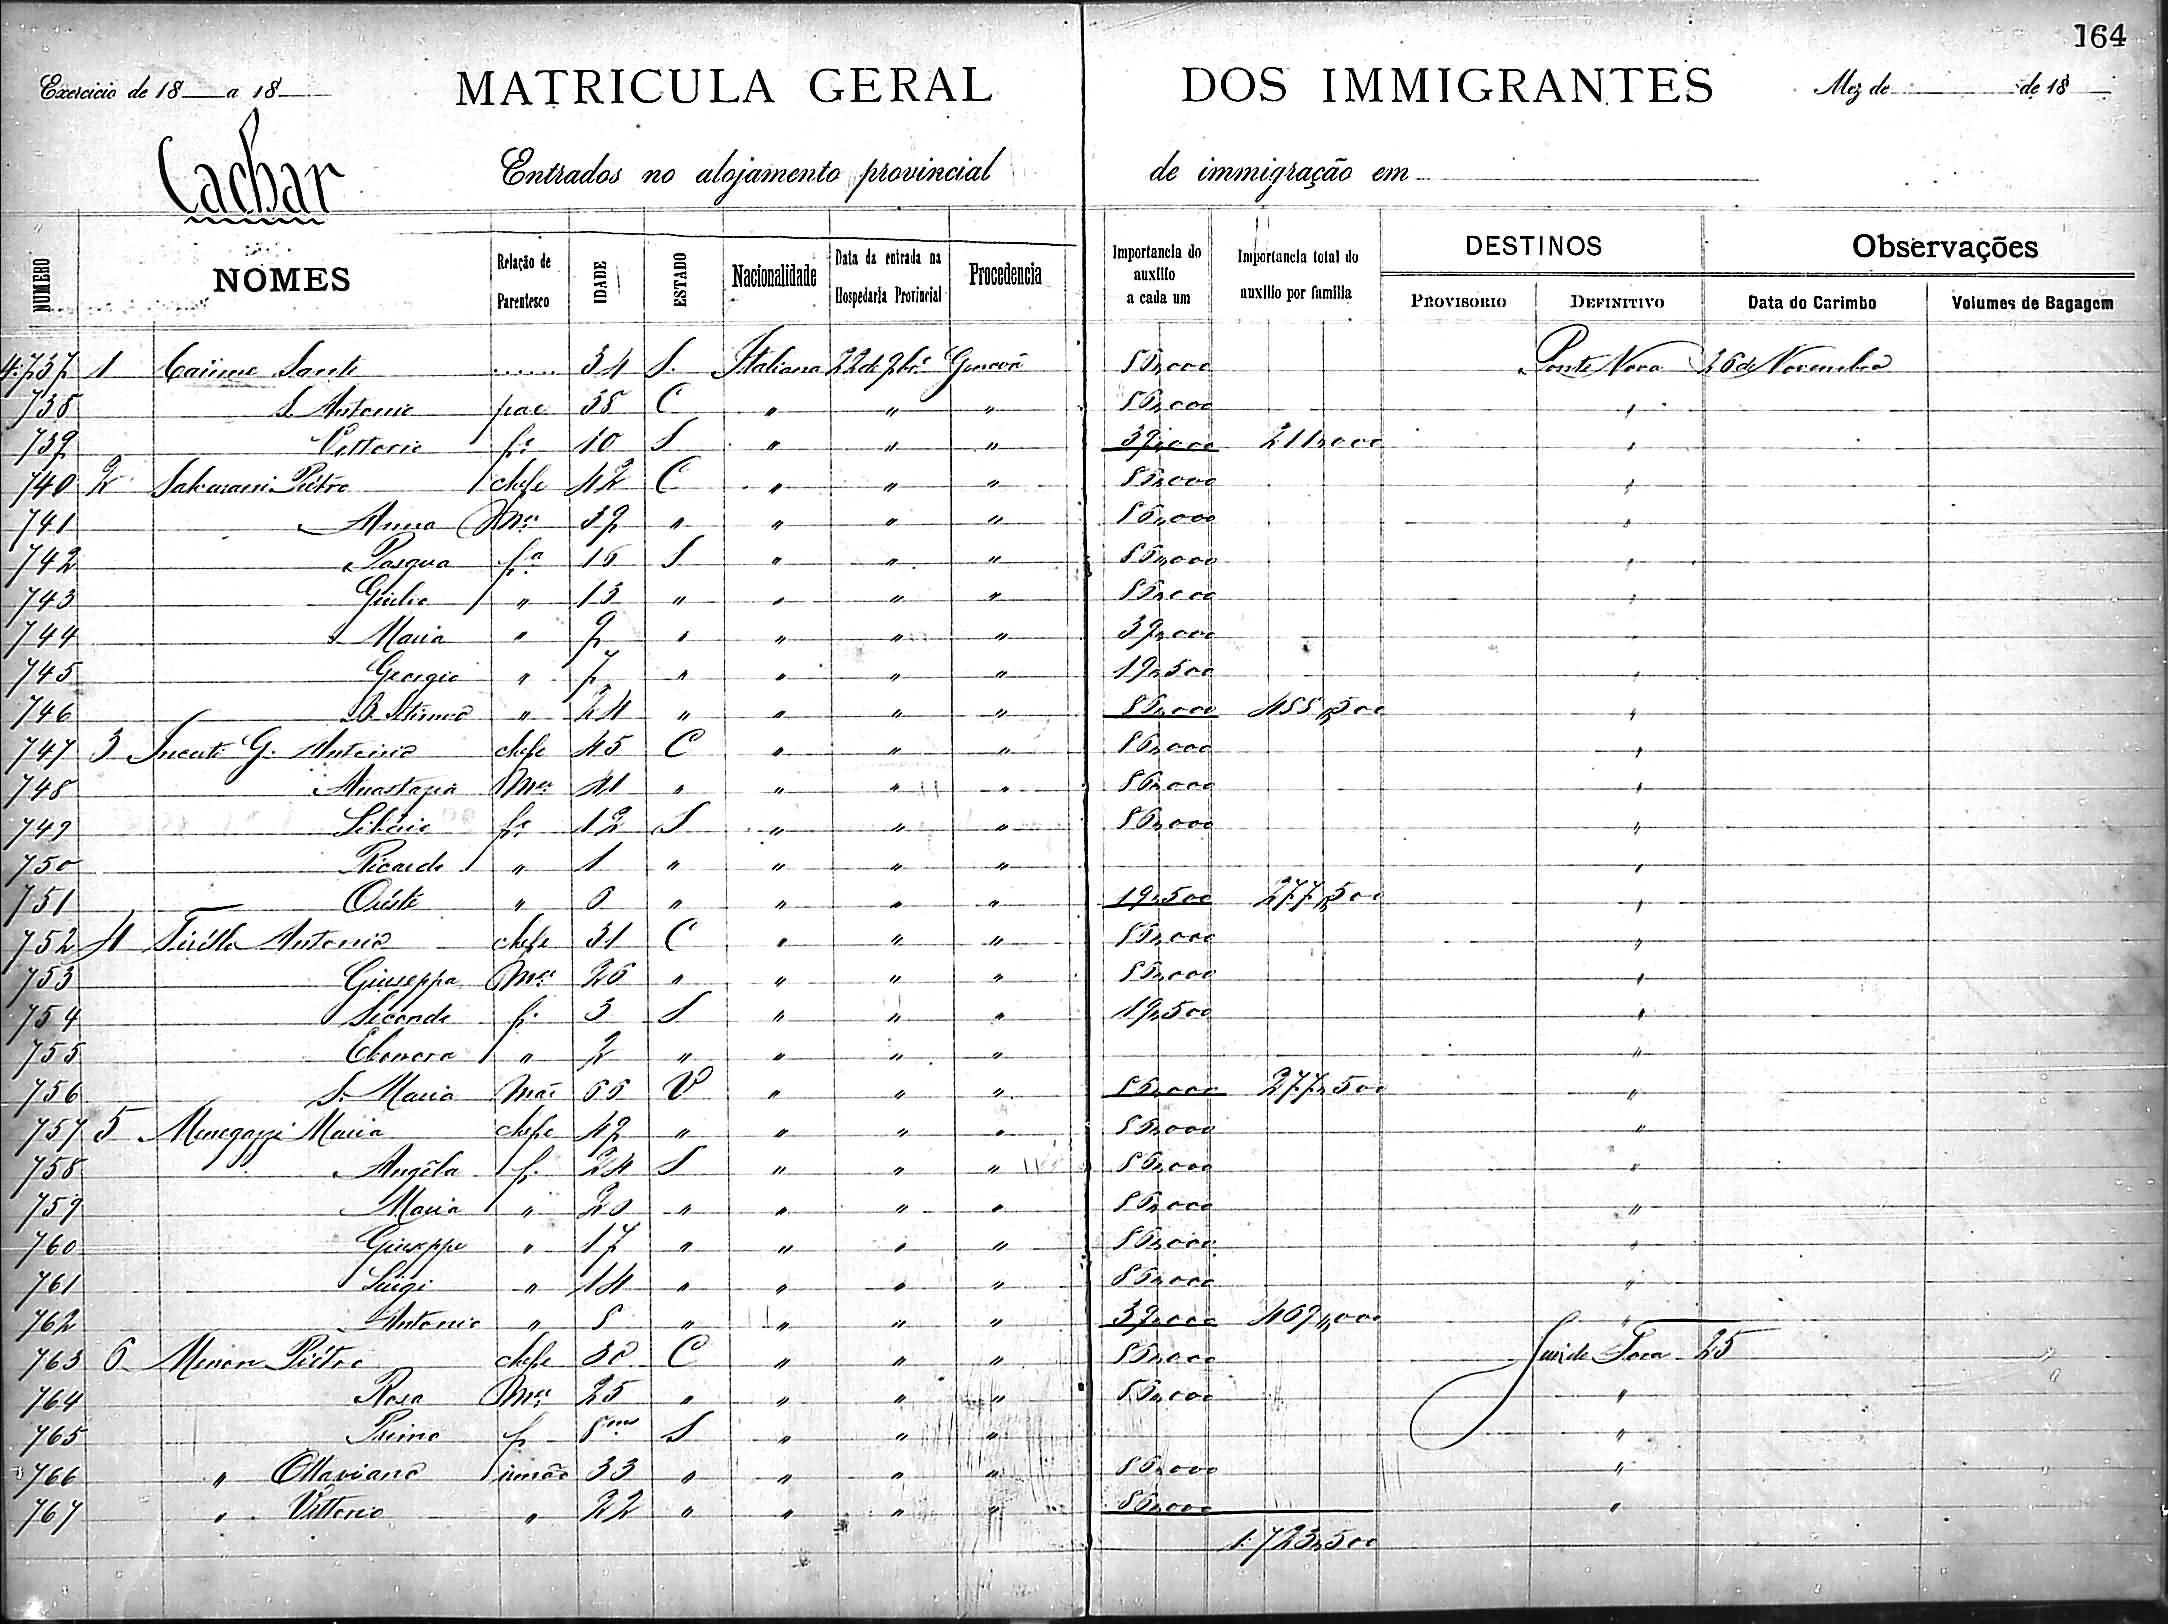 164
Exercicio de 18 a 18
MATRICULA GERAL DOS IMMIGRANTES
Mez de de 18
Cachar
Entrados no alojamento provincial de immigração em
NUMERO NOMES Relação de Parentesco IDADE ESTADO Nacionalidade Data da entrada na Hospedaria Provincial Procedencia Importancia do auxilio a cada um Importancia total do auxilio por familia DESTINOS PROVISORIO DEFINITIVO Observações Data do Carimbo Volumes de Bagagem
4:737 1 Sante 34 S. Italiana 22 de 9br.º Genova Ponte Nova 26 de Novembro
738 S. Antonio pae C " " "
739 Vittorio fº 10 S " " " 39,000 211,000 "
740 2 Pietro chefe 42 C " " " "
741 Anna Mer 39 " " " " "
742 Pasqua fª 16 S " " " "
743 Giulio " 13 " " " " "
744 Maria " 9 " " " " 39,000 "
745 Georgio " 7 " " " " 19,500 "
746 " 24 " " " " "
747 3 G. Antonio chefe 45 C " " " 86,000 "
748 Anastasia Mer 41 " " " " 86,000 "
749 fº 12 S " " " 86,000 "
750 Ricardo " 1 " " " " "
751 Oreste " " " " " 19,500 277,500 "
752 4 Antonio chefe 31 C " " " 86,000 "
753 Giuseppa Mer 26 " " " " 86,000 "
754 Secondo fº 3 S " " " 19,500 "
755 Eleonora " 2 " " " " "
756 S. Maria Mãe 66 V " " " 86,000 277,500 "
757 5 Menegazzi Maria chefe 49 " " " " 86,000 "
758 Angela f. 24 S " " " 86,000 "
759 Maria " 20 " " " " 86,000 "
760 Giuseppe " 17 " " " " 86,000 "
761 Luigi " 14 " " " " 86,000 "
762 Antonio " 8 " " " " 39,000 469,000 "
763 6 Pietro chefe 30 C " " " 86,000 Juiz de Fora 25
764 Rosa Mer 25 " " " " 86,000 "
765 Primo f 8 ms S " " " "
766 " Ottaviano irmão 33 " " " " 86,000 "
767 " Vittorio " 22 " " " " 86,000 "